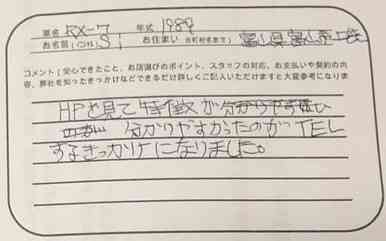 車名 RX-7 年式 1989
お名前(イニシャル) S.I お住まい(市町村名まで) 富山県富山市
コメント(安心できたこと、お店選びのポイント、スタッフの対応、お支払いや契約の内
容、弊社を知ったきっかけなどできるだけ詳しくご記入いただけますと大変参考になりま
HPを見て特徴が分かりやすく
分かりやすかったのが TEL
するきっかけになりました。